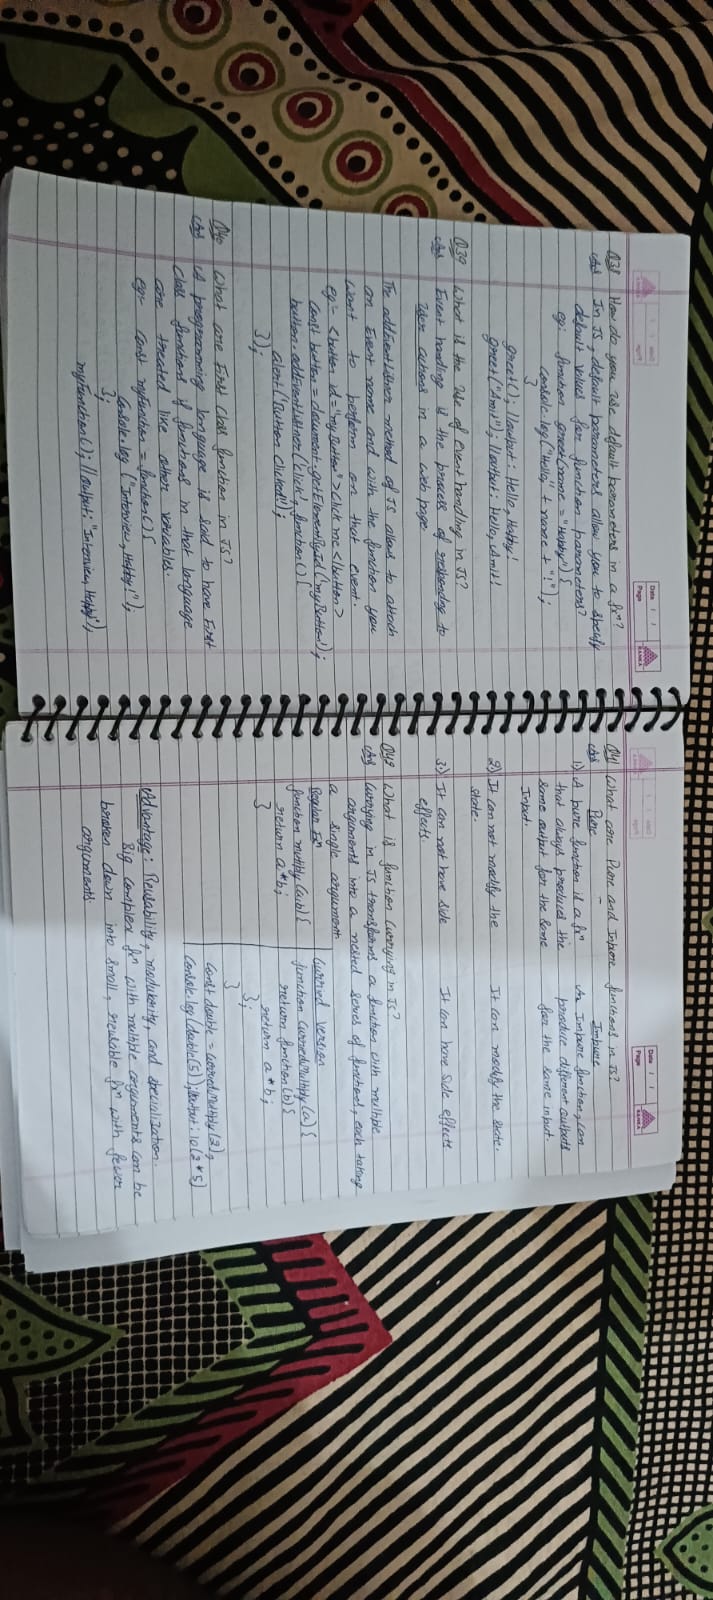 Date / /
Page
RANKA
Q38 How do you use default parameters in a fxn?
Ans In JS, default parameters allow you to specify
default values for function parameters?
eg: function greet(name = "Happy") {
console.log("Hello," + name + "!");
}
greet(); //output: Hello, Happy!
greet("Amit"); //output: Hello, Amit!
Q39 What is the use of event handling in JS?
Ans Event handling is the process of responding to
user actions in a web page.
The addEventListener method of JS allows to attach
an Event name and with the function you
want to perform on that event.
eg - <button id="myButton">Click me</button>
const button = document.getElementById('myButton');
button.addEventListener('click', function() {
alert("Button Clicked!");
});
Q40 What are First class function in JS?
Ans A programming language is said to have First
class functions if functions in that language
are treated like other variables.
eg- const myFunction = function() {
Console.log ("Interview, Happy!");
};
myFunction(); //output: "Interview, Happy"
Date / /
Page
RANKA
Q41 What are Pure and Impure functions in JS?
Ans Pure - Impure
1) A pure function is a fxn An Impure function, can
that always produced the produce different outputs
same output for the same for the same input.
Input.
2) It can not modify the It can modify the state.
state.
3) It can not have side It can have side effects
effects.
Q42 What is function Currying in JS?
Ans Currying in JS transforms a function with multiple
arguments into a nested series of functions, each taking
a single argument
Regular fxn Curried Version
function multiply(a,b) { function curriedMultiply(a) {
return a*b; return function(b) {
} return a*b;
};
}
const double = curriedMultiply(2);
Console.log(double(5)); //output: 10(2*5)
Advantage: Reusability, modularity, and specialization.
Big complex fxn with multiple arguments can be
broken down into small, reusable fxn with fewer
arguments.